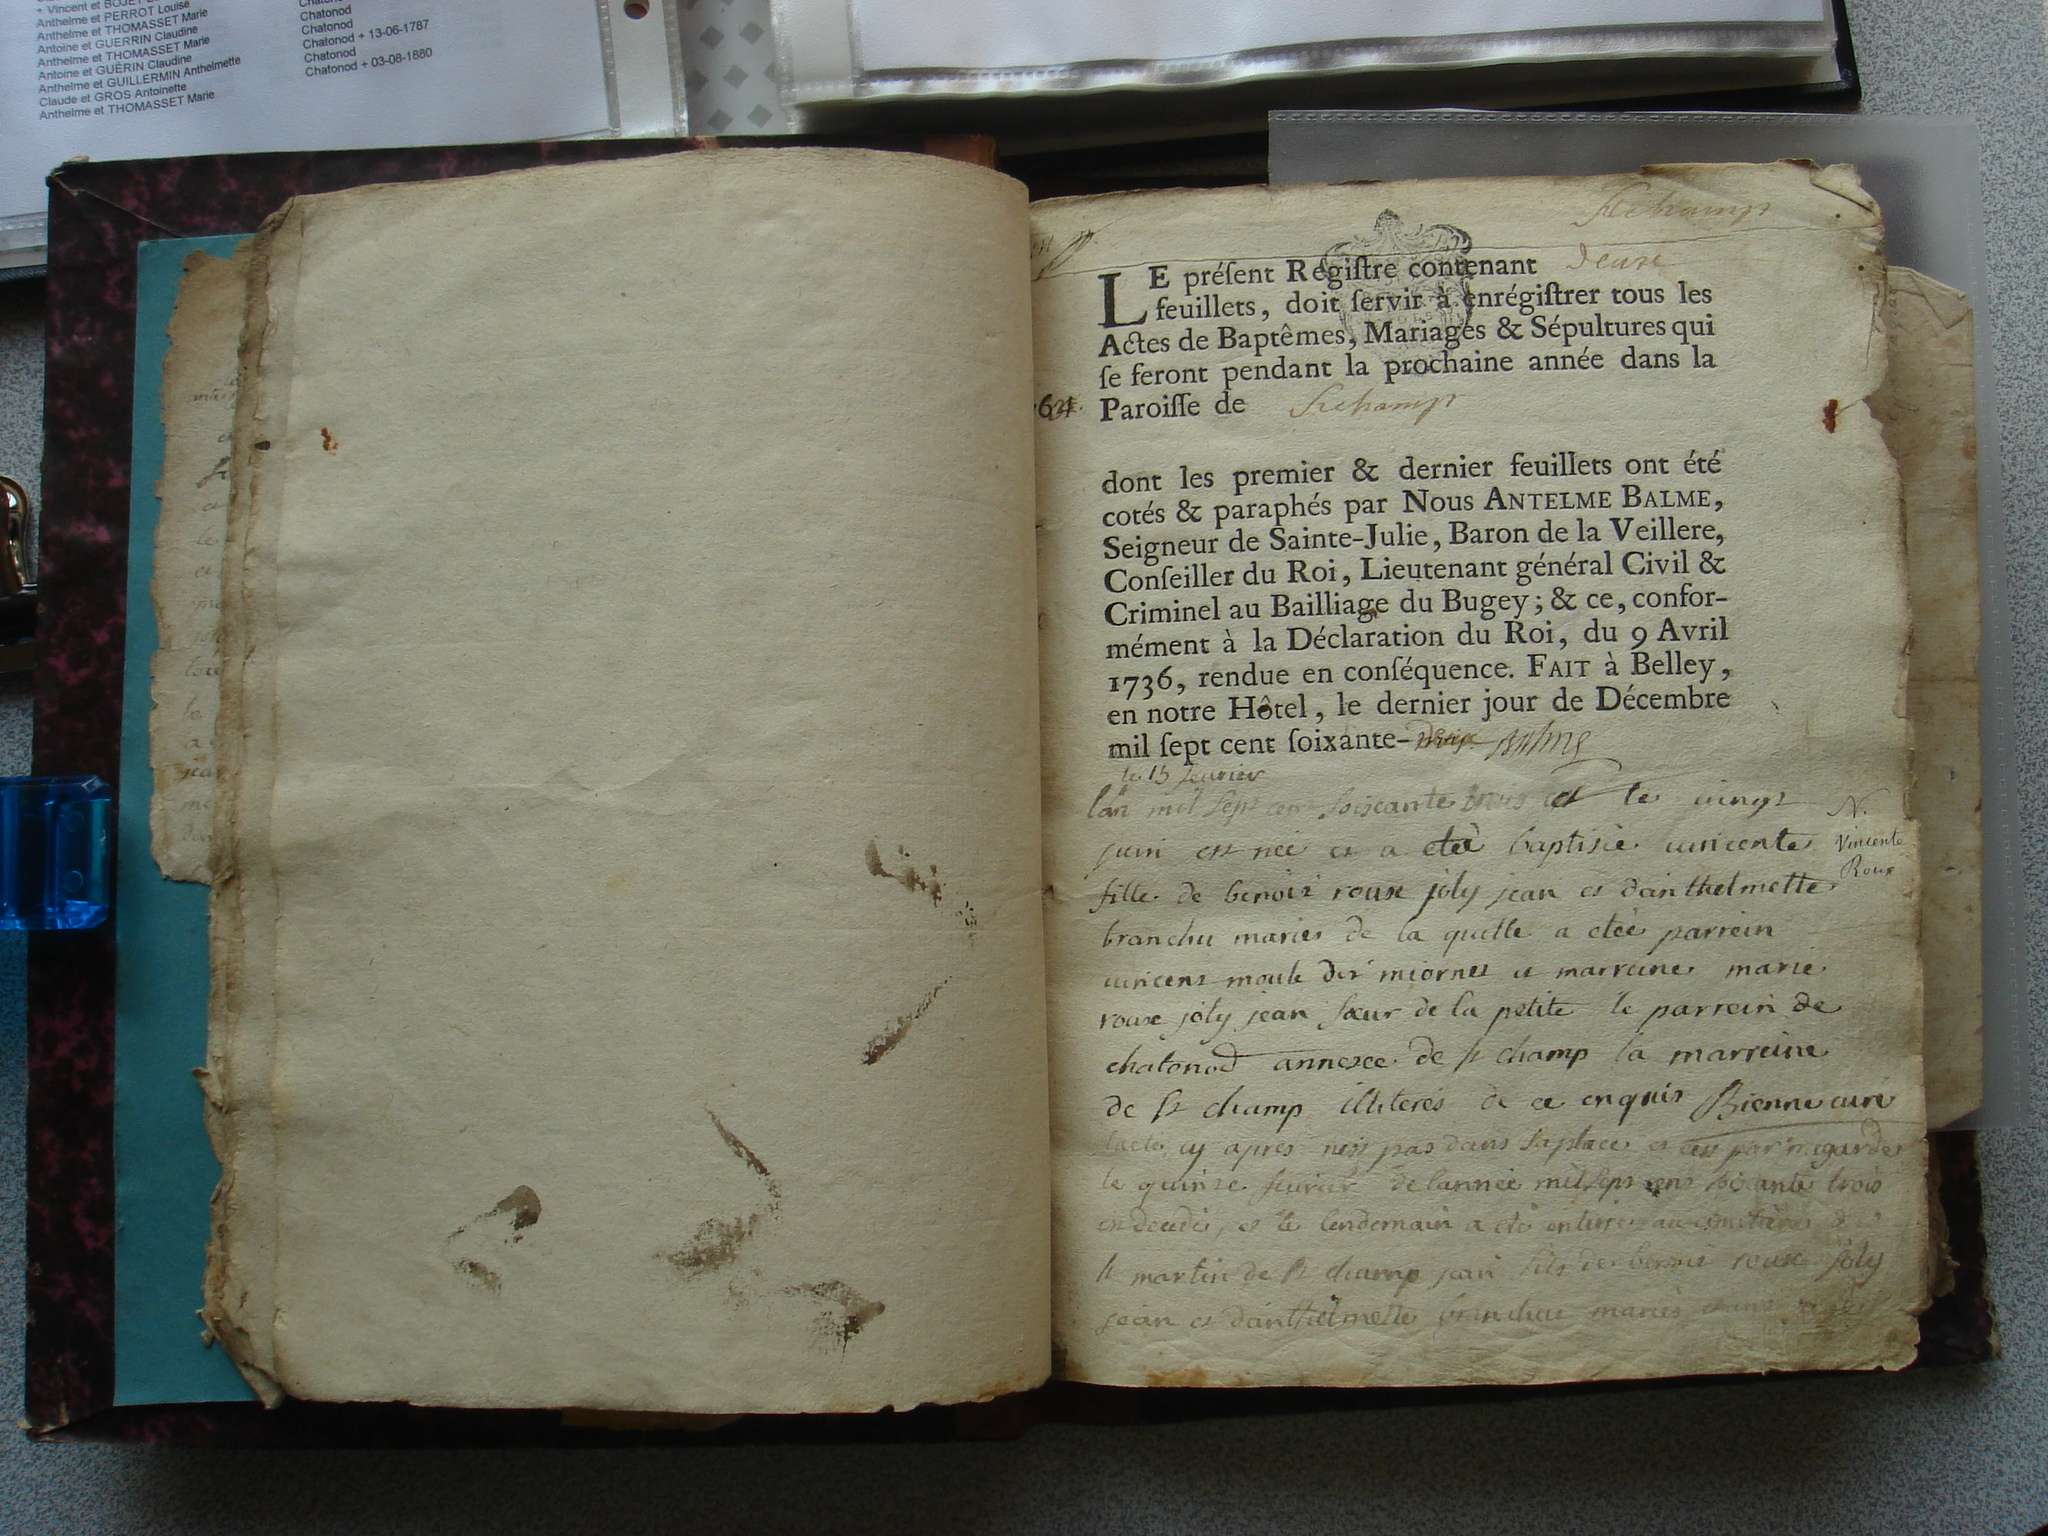 + Vincent et BOJET
Anthelme et PERROT Louise
Anthelme et THOMASSET Marie
Antoine et GUERRIN Claudine
Anthelme et THOMASSET Marie
Antoine et GUÉRIN Claudine
Anthelme et GUILLERMIN Anthelmette
Claude et GROS Antoinette
Anthelme et THOMASSET Marie
Chatonod
Chatonod
Chatonod + 13-06-1787
Chatonod
Chatonod + 03-08-1880
St champ
LE préſent Regiſtre contenant deux
feuillets, doit ſervir à enrégiſtrer tous les
Actes de Baptêmes, Mariages & Sépultures qui
ſe feront pendant la prochaine année dans la
Paroiſſe de St champ
dont les premier & dernier feuillets ont été
cotés & paraphés par Nous ANTELME BALME,
Seigneur de Sainte-Julie, Baron de la Veillere,
Conſeiller du Roi, Lieutenant général Civil &
Criminel au Bailliage du Bugey ; & ce, confor-
mément à la Déclaration du Roi, du 9 Avril
1736, rendue en conſéquence. FAIT à Belley,
en notre Hôtel, le dernier jour de Décembre
mil ſept cent ſoixante-deux Balme
le 15 feurier
lan mil sept cent soixante trois et le vingt
juin est née et a etéé baptisée vincente
N.
Vincente
Roux
fille de benoit roux joly jean et danthelmette
branchu mariés de la quelle a etéé parrein
vincent et marreine marie
roux joly jean sœur de la petite le parrein de
chatonod annexe de st champ la marreine
de st champ illiterés de ce enquis Bienne curé
lacte cy apres nest pas dans sa place et cest par megarde
le quinze feurier de lannée mil sept cent soixante trois
est decedé, et le lendemain a eté enterré au cimetiere de
st martin de st champ jean fils de benoit roux joly
jean et danthelmette branchu mariés